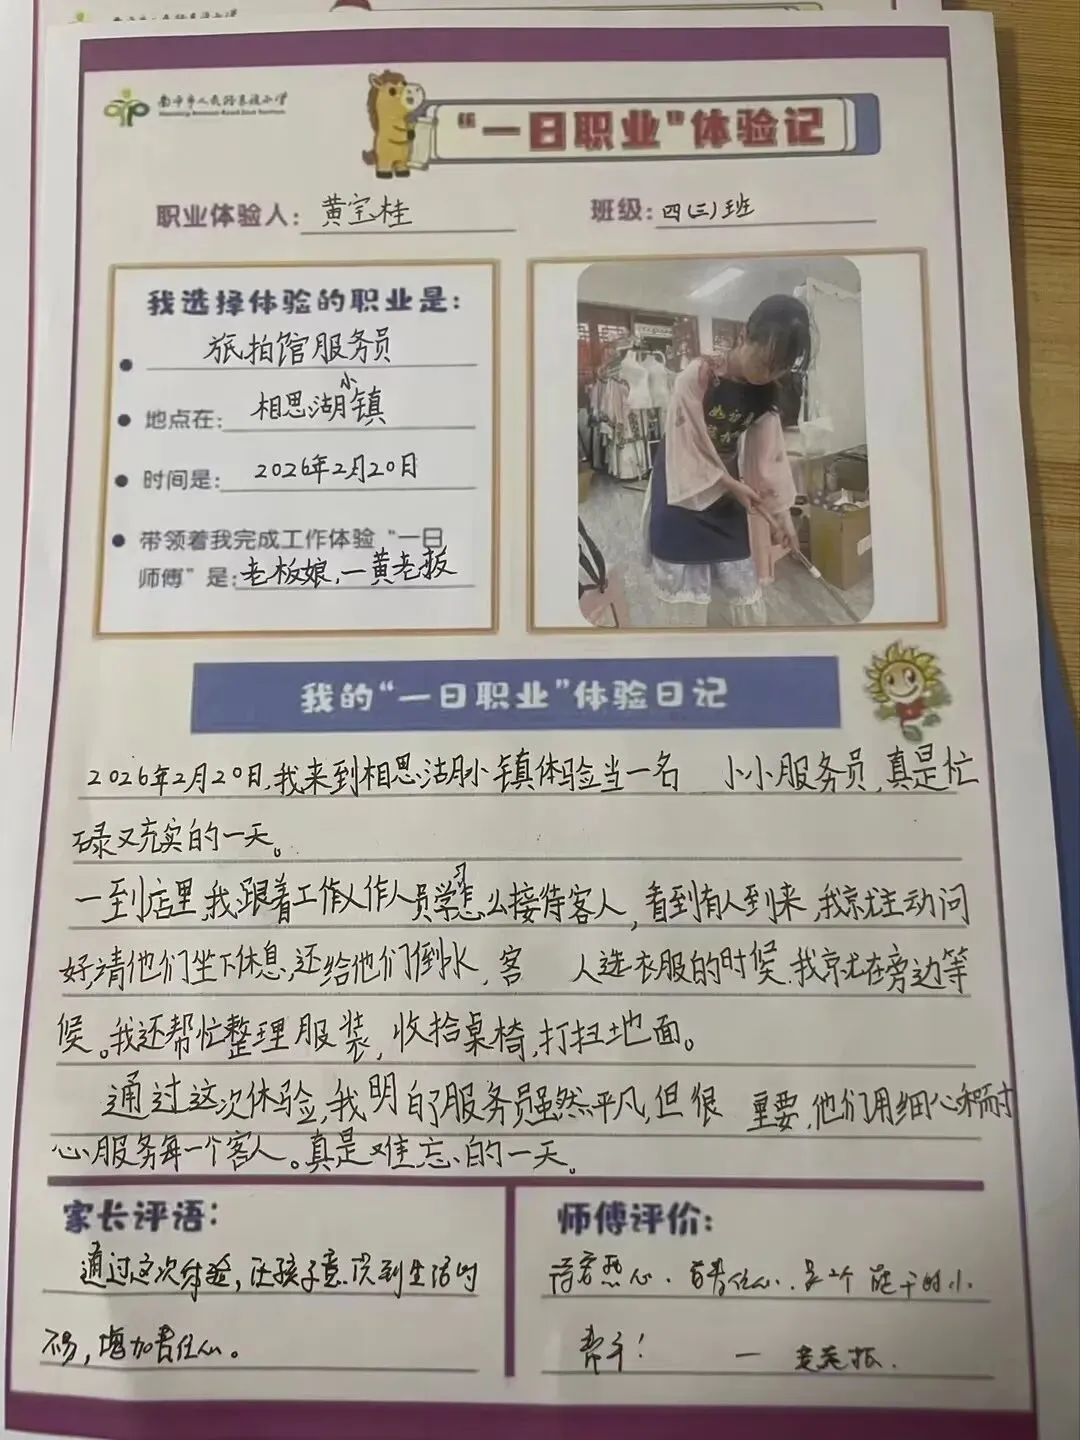 "一日职业"体验记
职业体验人：黄宝桂
班级：四(三)班
我选择体验的职业是：
旅拍馆服务员
地点在：相思湖小镇
时间是：2026年2月20日
带领着我完成工作体验"一日
师傅"是：老板娘,一黄老板
我的"一日职业"体验日记
2026年2月20日,我来到相思湖小镇体验当一名 小小服务员,真是忙
碌又充实的一天。
一到店里,我跟着工作人作人员学习怎么接待客人,看到有人到来,我就主动问
好,请他们坐下休息,还给他们倒水,客 人选衣服的时候.我就在旁边等
候。我还帮忙整理服装,收拾桌椅,打扫地面。
通过这次体验,我明白了服务员虽然平凡,但很 重要,他们用细心和耐
心服务每一个客人。真是难忘的一天。
家长评语：
通过这次体验,让孩子意识到生活的
不易,增加责任心。
师傅评价：
待客热心.有责任心.是个能干的小
帮手! 一黄老板.